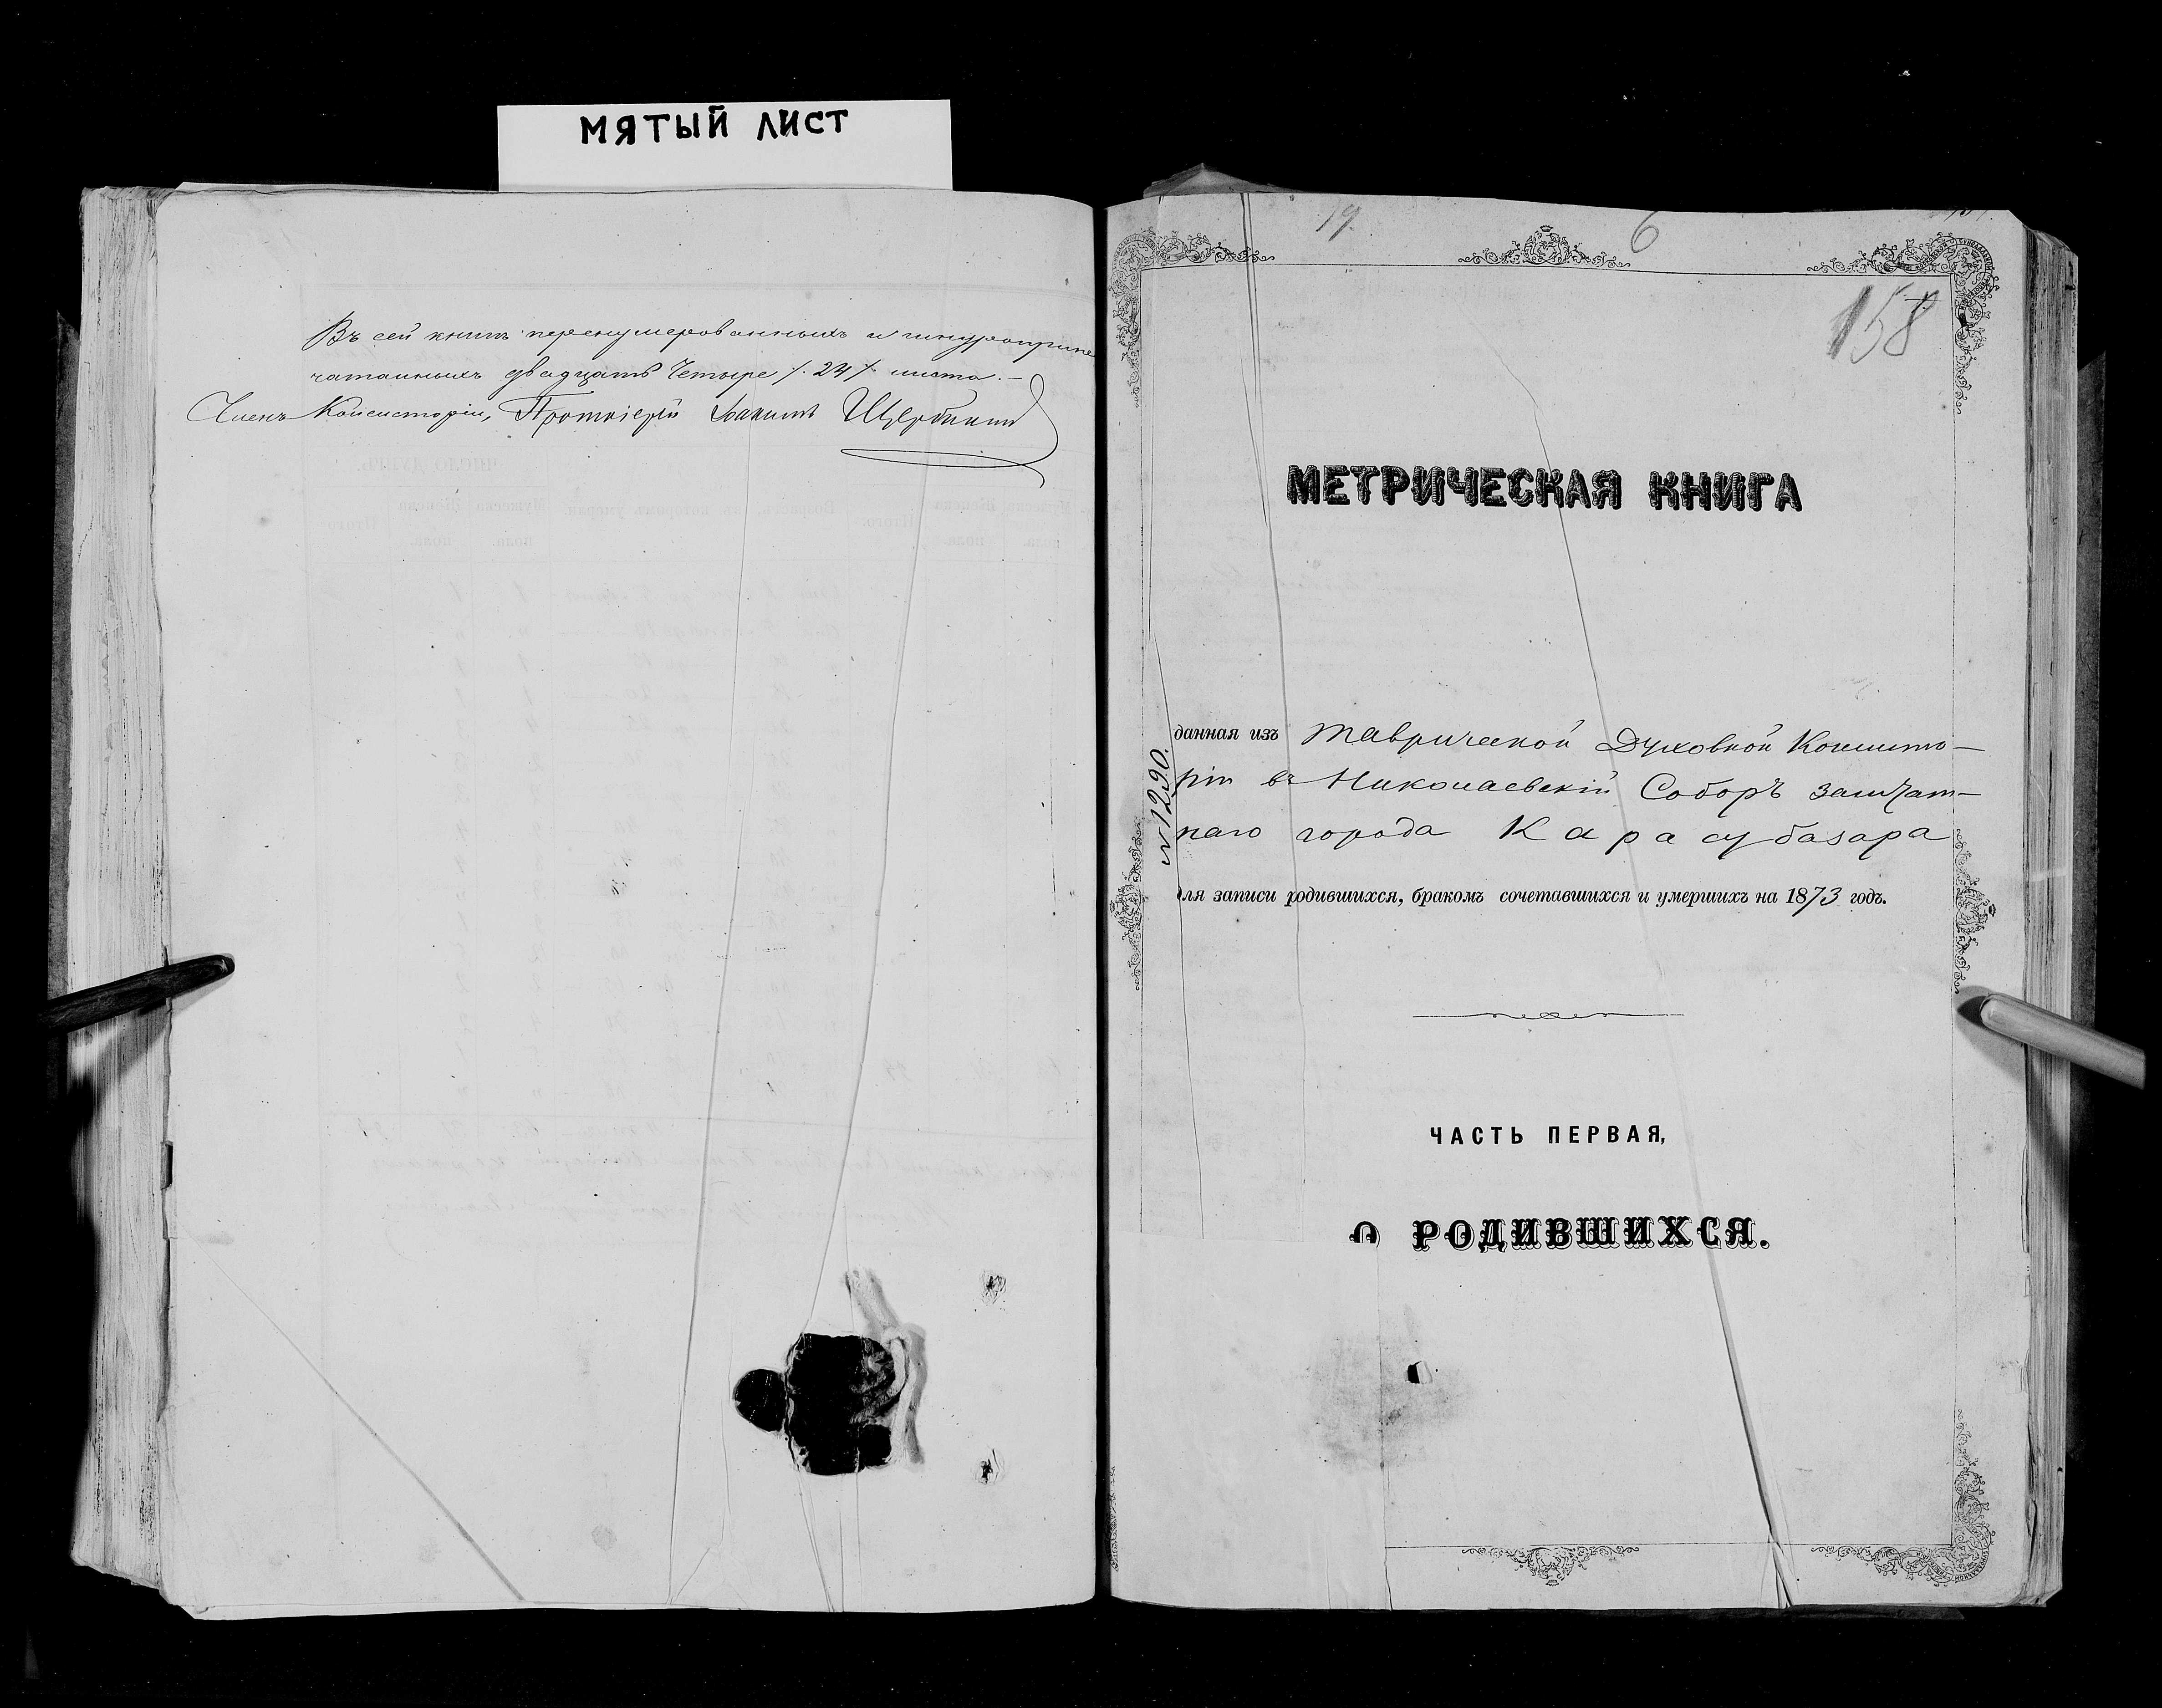 МЯТЫЙ ЛИСТ
Въ сей книгѣ перенумерованныхъ и шнуроприпе
чатанныхъ двадцать четыре /. 24 /. листа. —
Членъ Консисторіи, Протоіерей Іоакимъ Щербининъ
19.
6
158
МЕТРИЧЕСКАЯ КНИГА
данная изъ Таврической Духовной Консисто—
ріи въ Николаевскій Соборъ заштат—
наго города Карасубазара
№ 12,90.
для записи родившихся, бракомъ сочетавшихся и умершихъ на 1873 годъ.
ЧАСТЬ ПЕРВАЯ,
О РОДИВШИХСЯ.